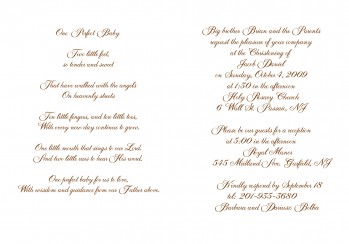 One Perfect Baby
Two little feet,
so tender and sweet
That have walked with the angels
On heavenly streets
Ten little fingers, and ten little toes,
With every new day continue to grow.
One little mouth that sings to our Lord,
And two little ears to hear His word.
One perfect baby for us to love,
With wisdom and guidance from our Father above.
Big brother Brian and the Parents
request the pleasure of your company
at the Christening of
Jacob Daniel
on Sunday, October 4, 2009
at 1:30 in the afternoon
Holy Rosary Church
6 Wall St. Passaic, NJ
Please be our guests for a reception
at 3:00 in the afternoon
Royal Manor
545 Midland Ave. Garfield, NJ
Kindly respond by September 18
tel: 201-955-3680
Barbara and Dariusz